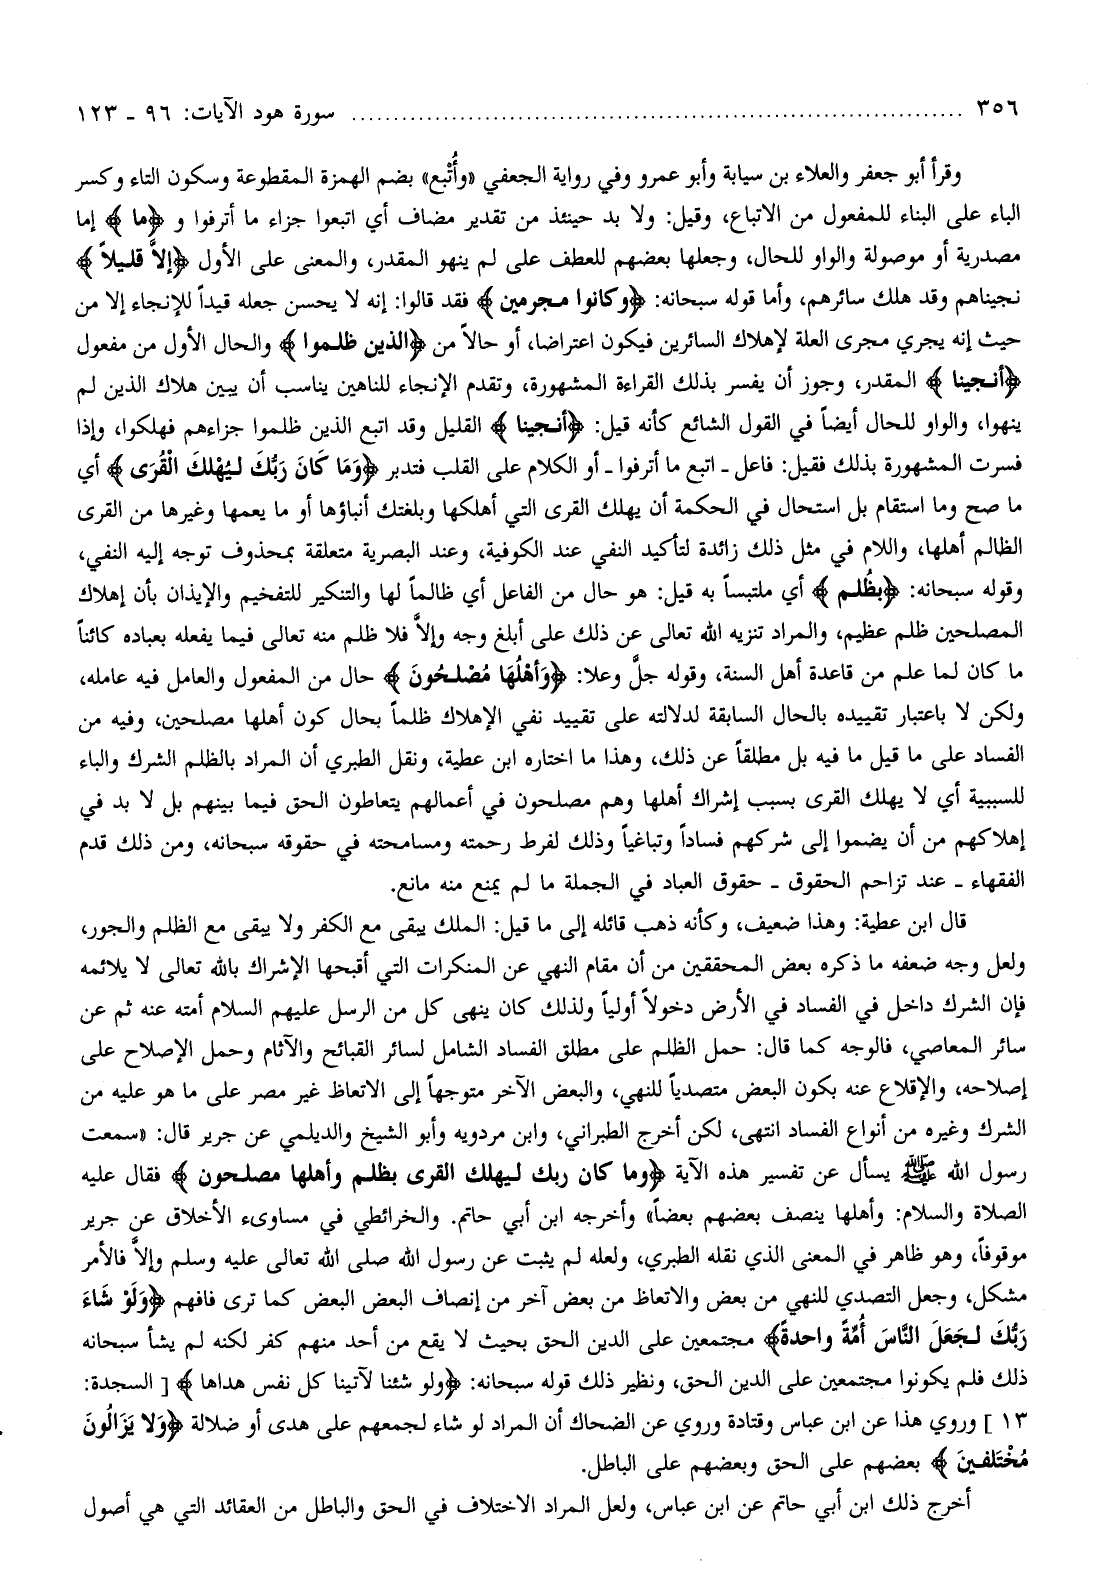 ٣٥٦ ........................................................................ سورة هود الآيات: ٩٦ ـ ١٢٣
وقرأ أبو جعفر والعلاء بن سيابة وأبو عمرو وفي رواية الجعفي «وأُتْبع» بضم الهمزة المقطوعة وسكون التاء وكسر
الباء على البناء للمفعول من الاتباع، وقيل: ولا بد حينئذ من تقدير مضاف أي اتبعوا جزاء ما أترفوا و ﴿ما﴾ إما
مصدرية أو موصولة والواو للحال، وجعلها بعضهم للعطف على لم ينهو المقدر، والمعنى على الأول ﴿إلاَّ قليلاً﴾
نجيناهم وقد هلك سائرهم، وأما قوله سبحانه: ﴿وكانوا مجرمين﴾ فقد قالوا: إنه لا يحسن جعله قيداً للإنجاء إلا من
حيث إنه يجري مجرى العلة لإهلاك السائرين فيكون اعتراضا، أو حالاً من ﴿الذين ظلموا﴾ والحال الأول من مفعول
﴿أنجينا﴾ المقدر، وجوز أن يفسر بذلك القراءة المشهورة، وتقدم الإنجاء للناهين يناسب أن يبين هلاك الذين لم
ينهوا، والواو للحال أيضاً في القول الشائع كأنه قيل: ﴿أنجينا﴾ القليل وقد اتبع الذين ظلموا جزاءهم فهلكوا، وإذا
فسرت المشهورة بذلك فقيل: فاعل ـ اتبع ما أترفوا ـ أو الكلام على القلب فتدبر ﴿وَمَا كَانَ رَبُّكَ لِيُهْلكَ الْقُرَى﴾ أي
ما صح وما استقام بل استحال في الحكمة أن يهلك القرى التي أهلكها وبلغتك أنباؤها أو ما يعمها وغيرها من القرى
الظالم أهلها، واللام في مثل ذلك زائدة لتأكيد النفي عند الكوفية، وعند البصرية متعلقة بمحذوف توجه إليه النفي،
وقوله سبحانه: ﴿بظُلم﴾ أي ملتبساً به قيل: هو حال من الفاعل أي ظالماً لها والتنكير للتفخيم والإيذان بأن إهلاك
المصلحين ظلم عظيم، والمراد تنزيه الله تعالى عن ذلك على أبلغ وجه وإلاَّ فلا ظلم منه تعالى فيما يفعله بعباده كائناً
ما كان لما علم من قاعدة أهل السنة، وقوله جلَّ وعلا: ﴿وَأهْلُهَا مُصْلحُونَ﴾ حال من المفعول والعامل فيه عامله،
ولكن لا باعتبار تقييده بالحال السابقة لدلالته على تقييد نفي الإهلاك ظلماً بحال كون أهلها مصلحين، وفيه من
الفساد على ما قيل ما فيه بل مطلقاً عن ذلك، وهذا ما اختاره ابن عطية، ونقل الطبري أن المراد بالظلم الشرك والباء
للسببية أي لا يهلك القرى بسبب إشراك أهلها وهم مصلحون في أعمالهم يتعاطون الحق فيما بينهم بل لا بد في
إهلاكهم من أن يضموا إلى شركهم فساداً وتباغياً وذلك لفرط رحمته ومسامحته في حقوقه سبحانه، ومن ذلك قدم
الفقهاء ـ عند تزاحم الحقوق ـ حقوق العباد في الجملة ما لم يمنع منه مانع.
قال ابن عطية: وهذا ضعيف، وكأنه ذهب قائله إلى ما قيل: الملك يبقى مع الكفر ولا يبقى مع الظلم والجور،
ولعل وجه ضعفه ما ذكره بعض المحققين من أن مقام النهي عن المنكرات التي أقبحها الإشراك بالله تعالى لا يلائمه
فإن الشرك داخل في الفساد في الأرض دخولاً أولياً ولذلك كان ينهى كل من الرسل عليهم السلام أمته عنه ثم عن
سائر المعاصي، فالوجه كما قال: حمل الظلم على مطلق الفساد الشامل لسائر القبائح والآثام وحمل الإصلاح على
إصلاحه، والإقلاع عنه بكون البعض متصدياً للنهي، والبعض الآخر متوجهاً إلى الاتعاظ غير مصر على ما هو عليه من
الشرك وغيره من أنواع الفساد انتهى، لكن أخرج الطبراني، وابن مردويه وأبو الشيخ والديلمي عن جرير قال: «سمعت
رسول الله ﷺ يسأل عن تفسير هذه الآية ﴿وما كان ربك ليهلك القرى بظلم وأهلها مصلحون﴾ فقال عليه
الصلاة والسلام: وأهلها ينصف بعضهم بعضاً» وأخرجه ابن أبي حاتم. والخرائطي في مساوىء الأخلاق عن جرير
موقوفاً، وهو ظاهر في المعنى الذي نقله الطبري، ولعله لم يثبت عن رسول الله صلى الله تعالى عليه وسلم وإلاَّ فالأمر
مشكل، وجعل التصدي للنهي من بعض والاتعاظ من بعض آخر من إنصاف البعض البعض كما ترى فافهم ﴿وَلَوْ شَاءَ
رَبُّكَ لَجَعَلَ النَّاسَ أُمَّةً واحدةً﴾ مجتمعين على الدين الحق بحيث لا يقع من أحد منهم كفر لكنه لم يشأ سبحانه
ذلك فلم يكونوا مجتمعين على الدين الحق، ونظير ذلك قوله سبحانه: ﴿ولو شئنا لآتينا كل نفس هداها﴾ [ السجدة:
١٣ ] وروي هذا عن ابن عباس وقتادة وروي عن الضحاك أن المراد لو شاء لجمعهم على هدى أو ضلالة ﴿وَلا يَزَالُونَ
مُخْتَلفينَ﴾ بعضهم على الحق وبعضهم على الباطل.
أخرج ذلك ابن أبي حاتم عن ابن عباس، ولعل المراد الاختلاف في الحق والباطل من العقائد التي هي أصول